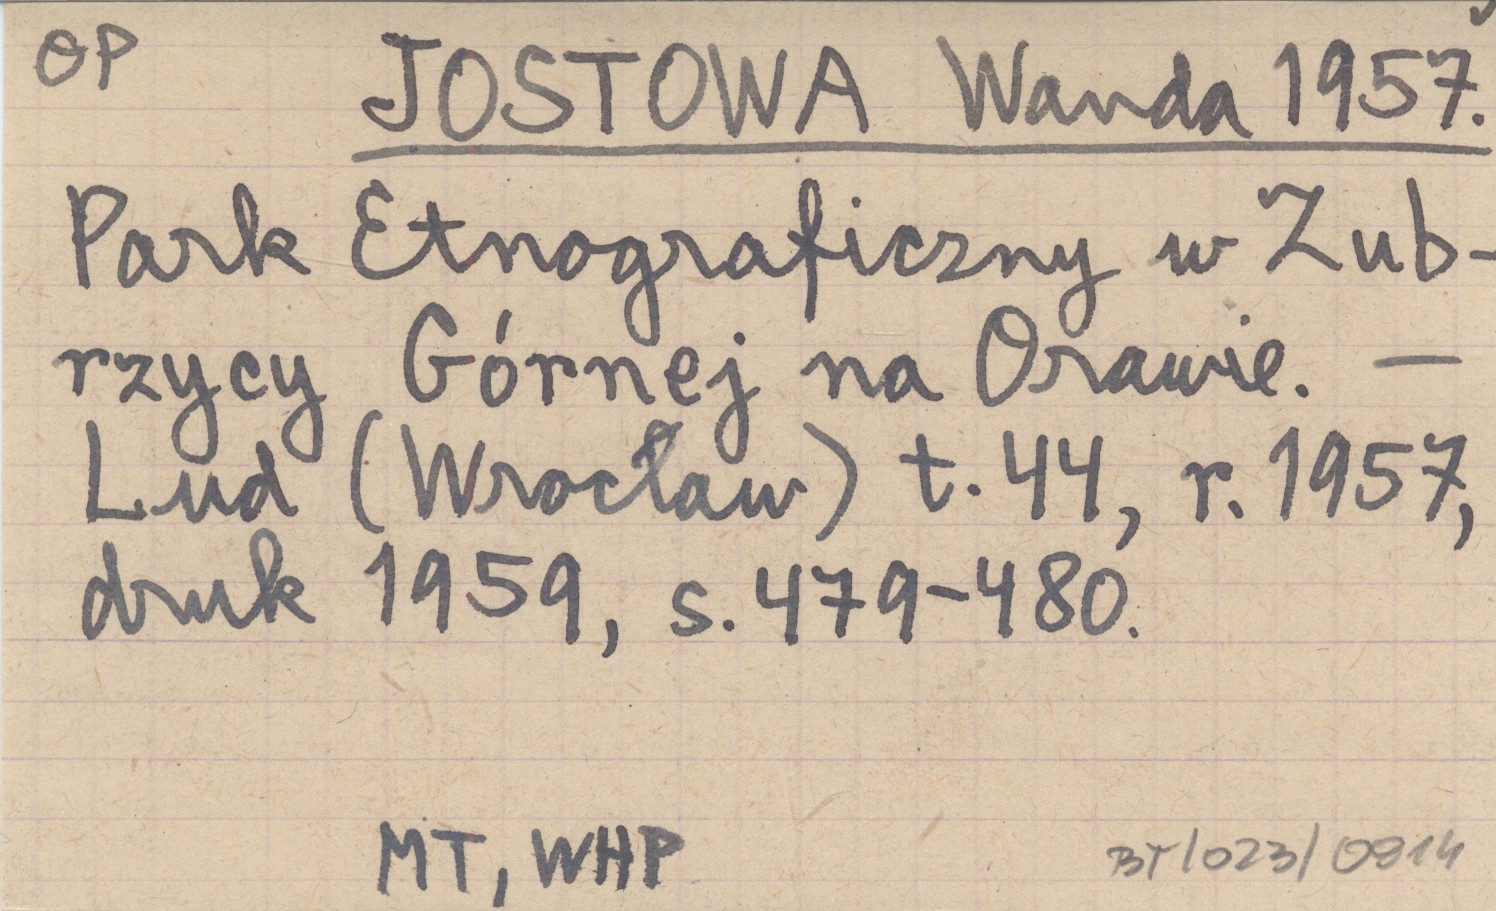 OP
JOSTOWA Wanda 1957.
Park Etnograficzny w Zub-
rzycy Górnej na Orawie. —
Lud (Wrocław) t. 44, r. 1957,
druk 1959, s. 479-480.
MT, WHP
BT/023/0814